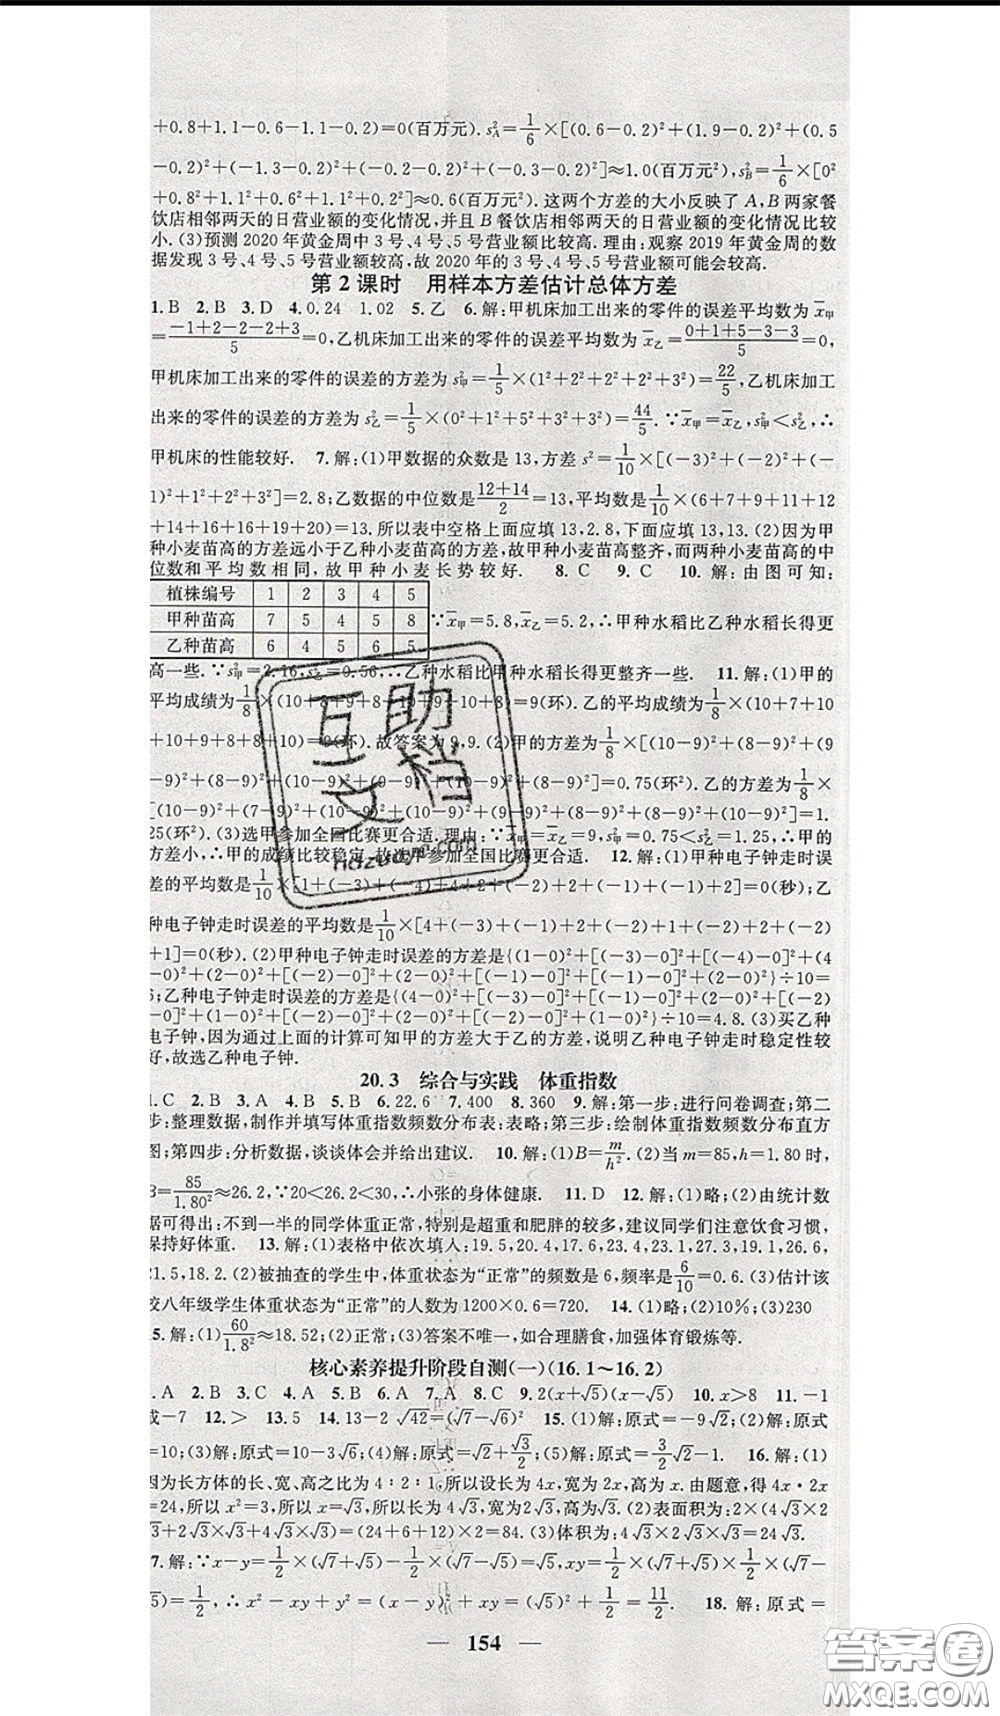 +0.8+1.1-0.6-1.1-0.2)=0(百万元).s²A=1/6×[(0.6-0.2)²+(1.9-0.2)²+(0.5
-0.2)²+(-1.3-0.2)²+(-0.2-0.2)²+(-0.3-0.2)²]≈1.0(百万元),s²B=1/6×[0²
+0.8²+1.1²+0.6²+1.1²+0.2²]≈0.6(百万元).这两个方差的大小反映了 A,B 两家餐
饮店相邻两天的日营业额的变化情况,并且 B 餐饮店相邻两天的日营业额的变化情况比较
小.(3)预测 2020 年黄金周中 3 号、4 号、5 号营业额比较高.理由:观察 2019 年黄金周的数
据发现 3 号、4 号、5 号营业额较高,故 2020 年的 3 号、4 号、5 号营业额可能会较高.
第 2 课时 用样本方差估计总体方差
1.B 2.B 3.D 4.0.24 1.02 5.乙 6.解:甲机床加工出来的零件的误差平均数为 x̄甲
=(-1+2-2-2+3)/5=0,乙机床加工出来的零件的误差平均数为 x̄乙=(0+1+5-3-3)/5=0,
甲机床加工出来的零件的误差的方差为 s²甲=1/5×(1²+2²+2²+2²+3²)=22/5,乙机床加工
出来的零件的误差的方差为 s²乙=1/5×(0²+1²+5²+3²+3²)=44/5.∵x̄甲=x̄乙,s²甲<s²乙,∴
甲机床的性能较好. 7.解:(1)甲数据的众数是 13,方差 s²=1/10×[(-3)²+(-2)²+(-
1)²+1²+2²+3²]=2.8;乙数据的中位数是(12+14)/2=13,平均数是1/10×(6+7+9+11+12
+14+16+16+19+20)=13.所以表中空格上面应填 13,2.8,下面应填 13,13.(2)因为甲
种小麦苗高的方差远小于乙种小麦苗高的方差,故甲种小麦苗高整齐,而两种小麦苗高的中
位数和平均数相同,故甲种小麦长势较好. 8.C 9.C 10.解:由图可知:
植株编号 1 2 3 4 5
甲种苗高 7 5 4 5 8
∵x̄甲=5.8,x̄乙=5.2,∴甲种水稻比乙种水稻长得更
乙种苗高 6 4 5 6 5
高一些.∵s²甲=2.16,s²乙=0.56,∴乙种水稻比甲种水稻长得更整齐一些. 11.解:(1)甲的
平均成绩为1/8×(10+8+9+8+10+9+10+8)=9(环).乙的平均成绩为1/8×(10+7+10
+10+9+8+8+10)=9(环).故答案为 9,9.(2)甲的方差为1/8×[(10-9)²+(8-9)²+(9
-9)²+(8-9)²+(10-9)²+(9-9)²+(10-9)²+(8-9)²]=0.75(环²).乙的方差为1/8×
[(10-9)²+(7-9)²+(10-9)²+(10-9)²+(9-9)²+(8-9)²+(8-9)²+(10-9)²]=1.
25(环²).(3)选甲参加全国比赛更合适.理由:∵x̄甲=x̄乙=9,s²甲=0.75<s²乙=1.25,∴甲的
方差小,∴甲的成绩比较稳定,故选甲参加全国比赛更合适. 12.解:(1)甲种电子钟走时误
差的平均数是1/10×[1+(-3)+(-4)+4+2+(-2)+2+(-1)+(-1)+2]=0(秒);乙
种电子钟走时误差的平均数是1/10×[4+(-3)+(-1)+2+(-2)+1+(-2)+2+(-2)
+1]=0(秒).(2)甲种电子钟走时误差的方差是{(1-0)²+[(-3)-0]²+[(-4)-0]²+
(4-0)²+(2-0)²+[(-2)-0]²+(2-0)²+[(-1)-0]²+[(-1)-0]²+(2-0)²}÷10=
6;乙种电子钟走时误差的方差是{(4-0)²+[(-3)-0]²+[(-1)-0]²+(2-0)²+[(-2)
-0]²+(1-0)²+[(-2)-0]²+(2-0)²+[(-2)-0]²+(1-0)²}÷10=4.8.(3)买乙种
电子钟,因为通过上面的计算可知甲的方差大于乙的方差,说明乙种电子钟走时稳定性较
好,故选乙种电子钟.
20.3 综合与实践 体重指数
1.C 2.B 3.A 4.B 5.B 6.22.6 7.400 8.360 9.解:第一步:进行问卷调查;第二
步:整理数据,制作并填写体重指数频数分布表:表略;第三步:绘制体重指数频数分布直方
图;第四步:分析数据,谈谈体会并给出建议. 10.解:(1)B=m/h².(2)当 m=85,h=1.80 时,
B=85/1.80²≈26.2,∵20<26.2<30,∴小张的身体健康. 11.D 12.解:(1)略;(2)由统计数
据可得出:不到一半的同学体重正常,特别是超重和肥胖的较多,建议同学们注意饮食习惯,
保持好体重. 13.解:(1)表格中依次填入:19.5,20.4,17.6,23.4,23.1,27.3,19.1,26.6,
21.5,18.2.(2)被抽查的学生中,体重状态为“正常”的频数是 6,频率是6/10=0.6.(3)估计该
校八年级学生体重状态为“正常”的人数为 1200×0.6=720. 14.(1)略;(2)10%;(3)230
15.解:(1)60/1.8²≈18.52;(2)正常;(3)答案不唯一,如合理膳食,加强体育锻炼等.
核心素养提升阶段自测(一)(16.1~16.2)
1.A 2.B 3.C 4.A 5.B 6.A 7.A 8.C 9.2(x+√5)(x-√5) 10.x>8 11.-1
或-7 12.> 13.5 14.13-2√42=(√7-√6)² 15.(1)解:原式=-9√2;(2)解:原式
=10;(3)解:原式=10-3√6;(4)解:原式=√2+√3/2;(5)解:原式=3/2√2-1. 16.解:(1)
因为长方体的长、宽、高之比为 4∶2∶1,所以设长为 4x,宽为 2x,高为 x.由题意,得 4x·2x
=24,所以 x²=3,所以 x=√3,所以长为 4√3,宽为 2√3,高为√3.(2)表面积为:2×(4√3×2
√3+2√3×√3+4√3×√3)=(24+6+12)×2=84.(3)体积为:4√3×2√3×√3=24√3.
17.解:∵x-y=1/2×(√7+√5)-1/2×(√7-√5)=√5,xy=1/2×(√7+√5)×1/2×(√7-
√5)=1/2,∴x²-xy+y²=(x-y)²+xy=(√5)²+1/2=11/2. 18.解:原式=
— 154 —
互助文档
hdzuoye.com
答案圈
MXQE.COM